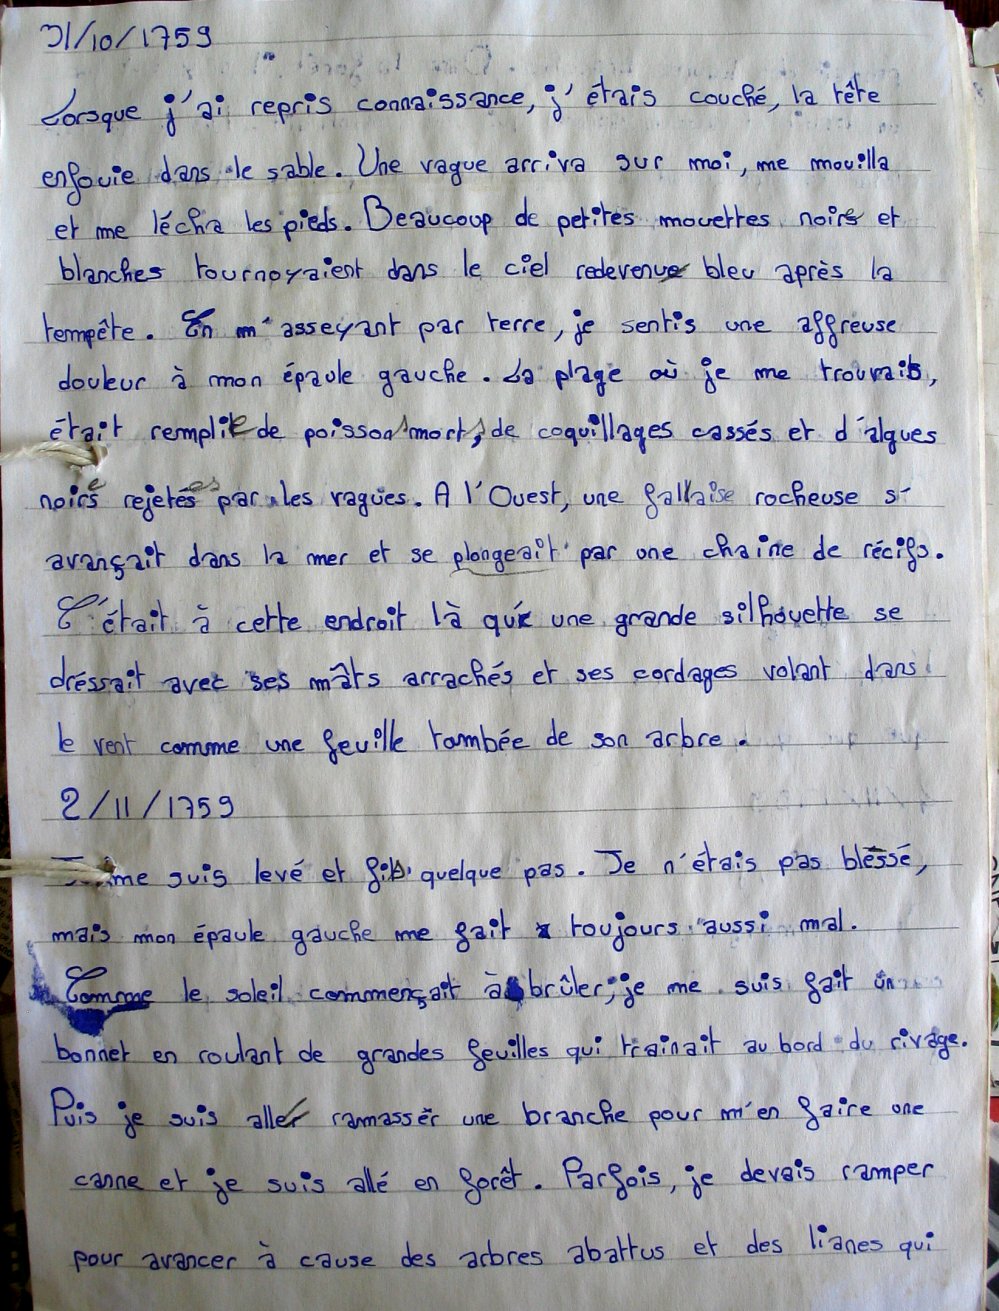 31/10/1759
Lorsque j'ai repris connaissance, j'étais couché, la tête
enfouie dans le sable. Une vague arriva sur moi, me mouilla
et me lécha les pieds. Beaucoup de petites mouettes noires et
blanches tournoyaient dans le ciel redevenue bleu après la
tempête. En m'asseyant par terre, je sentis une affreuse
douleur à mon épaule gauche. La plage où je me trouvais,
était remplie de poissons morts, de coquillages cassés et d'algues
noires rejetées par les vagues. A l'Ouest, une fallaise rocheuse s'
avançait dans la mer et se plongeait par une chaine de récifs.
C'était à cette endroit là qu'une grande silhouette se
dréssait avec ses mâts arrachés et ses cordages volant dans
le vent comme une feuille tombée de son arbre.
2/11/1759
Je me suis levé et fis quelque pas. Je n'étais pas blessé,
mais mon épaule gauche me fait toujours aussi mal.
Comme le soleil commençait à brûler, je me suis fait un
bonnet en roulant de grandes feuilles qui trainait au bord du rivage.
Puis je suis aller ramasser une branche pour m'en faire une
canne et je suis allé en forêt. Parfois, je devais ramper
pour avancer à cause des arbres abattus et des lianes qui